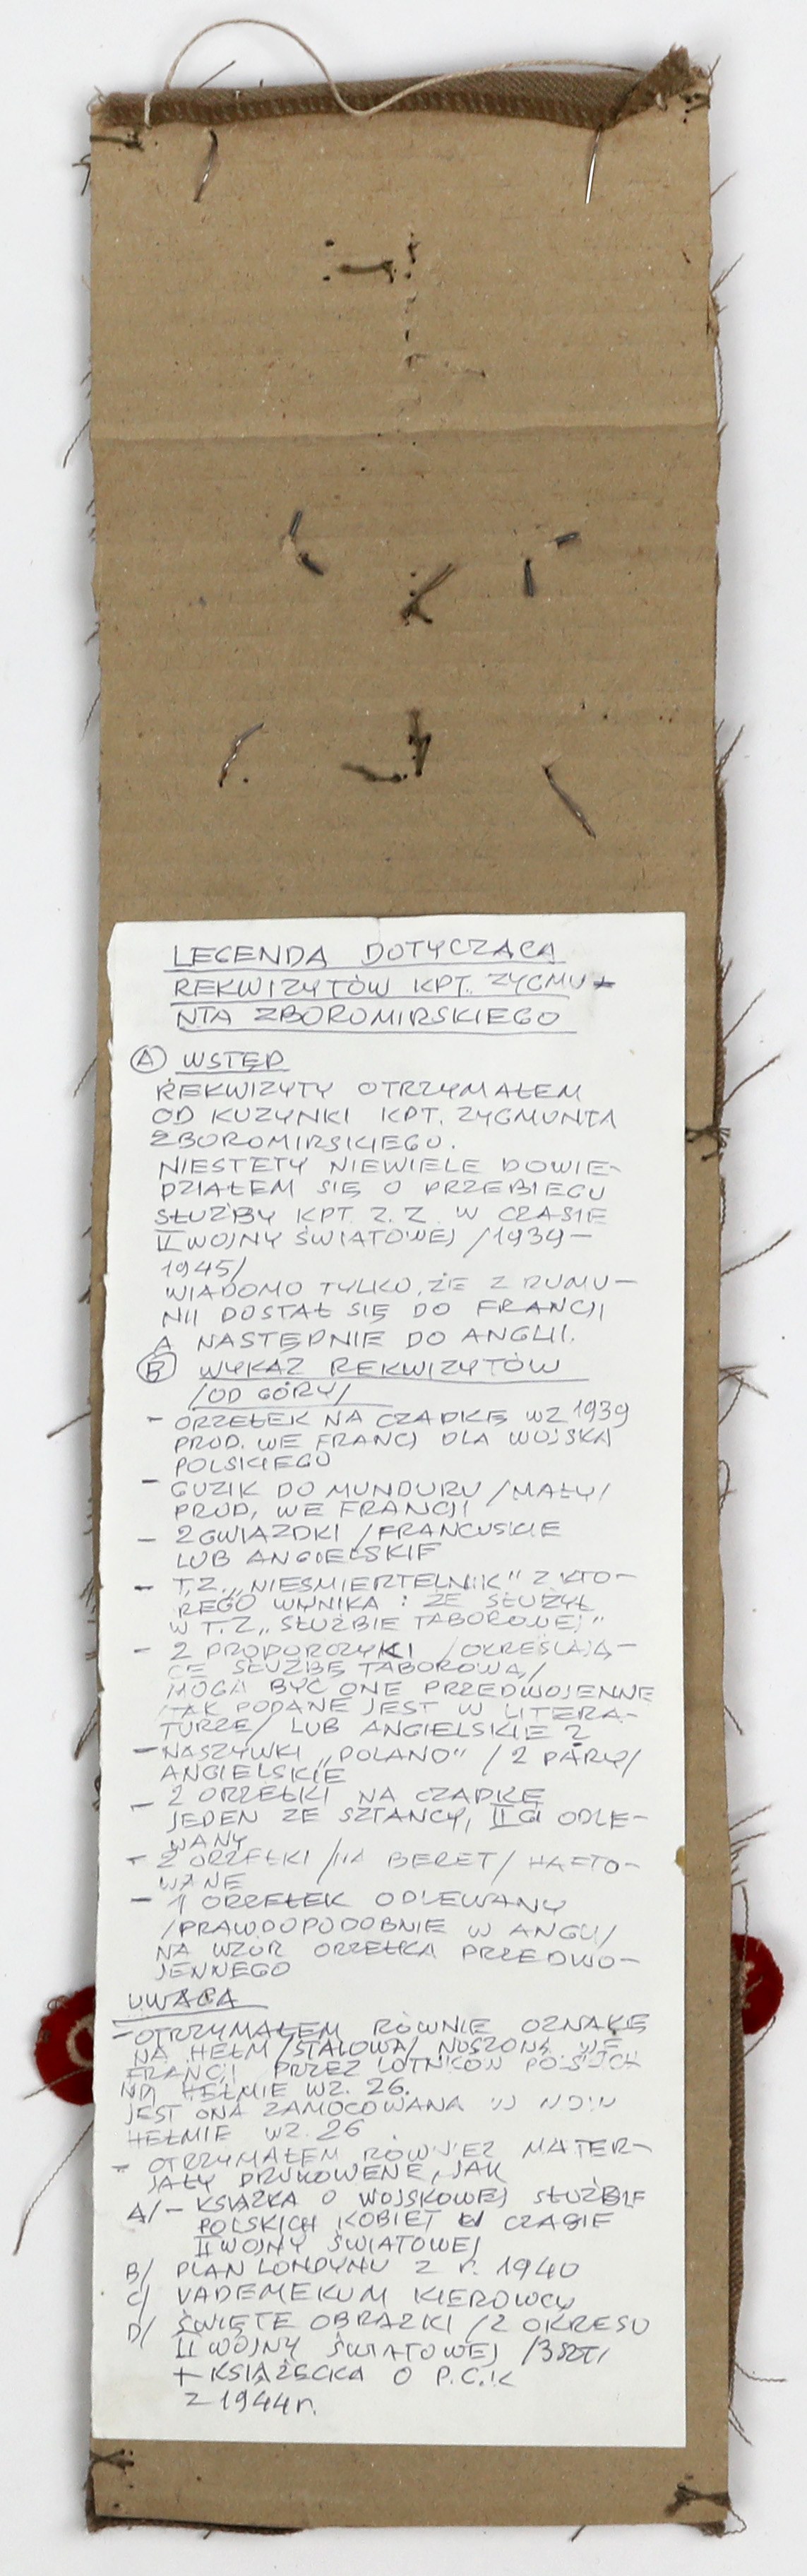 LEGENDA DOTYCZĄCA
REKWIZYTÓW KPT. ZYGMU-
NTA ZBOROMIRSKIEGO
A WSTĘP
REKWIZYTY OTRZYMAŁEM
OD KUZYNKI KPT. ZYGMUNTA
ZBOROMIRSKIEGO.
NIESTETY NIEWIELE DOWIE-
DZIAŁEM SIĘ O PRZEBIEGU
SŁUŻBY KPT. Z. Z. W CZASIE
II WOJNY ŚWIATOWEJ /1939-
1945/
WIADOMO TYLKO, ŻE Z RUMU-
NII DOSTAŁ SIĘ DO FRANCJI
A NASTĘPNIE DO ANGLII.
B WYKAZ REKWIZYTÓW
/OD GÓRY/
- ORZEŁEK NA CZAPKĘ WZ 1939
PROD. WE FRANCJ DLA WOJSKA
POLSKIEGO
- GUZIK DO MUNDURU /MAŁY/
PROD, WE FRANCJI
- 2 GWIAZDKI /FRANCUSKIE
LUB ANGIELSKIE
- T.Z. „NIEŚMIERTELNIK" Z KTO-
REGO WYNIKA: ŻE SŁUŻYŁ
W T.Z „SŁUŻBIE TABOROWEJ"
- 2 PROPORCZYKI /OKREŚLAJĄ-
CE SŁUŻBĘ TABOROWĄ/
MOGĄ BYĆ ONE PRZEDWOJENNE
/TAK PODANE JEST W LITERA-
TURZE/ LUB ANGIELSKIE ?
- NASZYWKI „POLAND" /2 PARY/
ANGIELSKIE
- 2 ORZEŁKI NA CZAPKĘ
JEDEN ZE SZTANCY, II GI ODLE-
WANY
- 2 ORZEŁKI /NA BERET/ HAFTO-
WANE
- 1 ORZEŁEK ODLEWANY
/PRAWDOPODOBNIE W ANGLI/
NA WZÓR ORZEŁKA PRZEDWO-
JENNEGO
UWAGA
- OTRZYMAŁEM RÓWNIE OZNAKĘ
NA HEŁM /STALOWA/ NOSZONĄ WE
FRANCJI PRZEZ LOTNIKÓW
NA HEŁMIE WZ. 26.
JEST ONA ZAMOCOWANA W
HEŁMIE WZ. 26
- OTRZYMAŁEM RÓWNIEŻ MATER-
JAŁY DRUKOWENE, JAK
A/ - KSIĄŻKA O WOJSKOWEJ SŁUŻBIE
POLSKICH KOBIET W CZASIE
II WOJNY ŚWIATOWEJ
B/ PLAN LONDYNU Z r. 1940
C/ VADEMEKUM KIEROWCY
D/ ŚWIĘTE OBRAZKI /Z OKRESU
II WOJNY ŚWIATOWEJ /3 SZT/
+ KSIĄŻECKA O P.C.K
Z 1944 r.